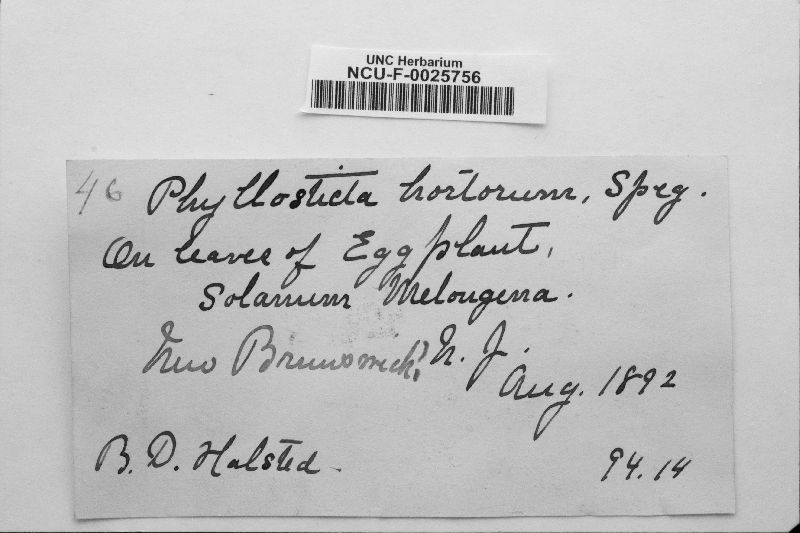 UNC Herbarium
NCU-F-0025756
46 Phyllosticta hortorum, Speg.
On leaves of Egg plant,
Solanum Melongena.
New Brunswick, N. J.
Aug. 1892
B. D. Halsted
94.14